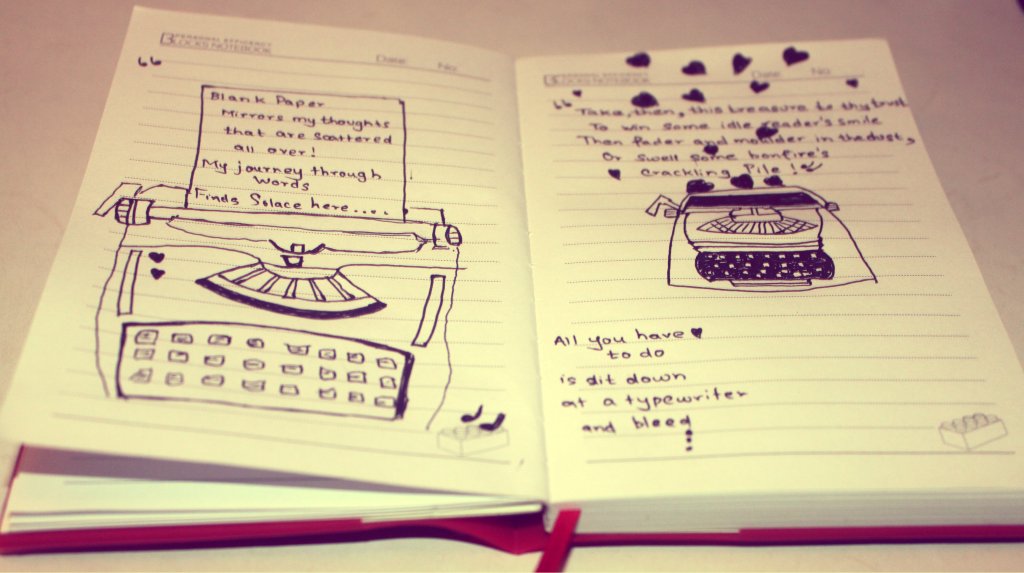 PERSONAL EFFICIENCY
BLOCKS NOTEBOOK
Date: No:
“
Blank Paper
Mirrors my thoughts
that are scattered
all over!
My journey through
Words
Finds Solace here....
PERSONAL EFFICIENCY
BLOCKS NOTEBOOK
Date: No:
“ Take, then, this treasure to thy trust
To win some idle reader's smile
Then fader and moulder in the dust,
Or swell some bonfire's
Crackling Pile!
All you have
to do
is dit down
at a typewriter
and bleed